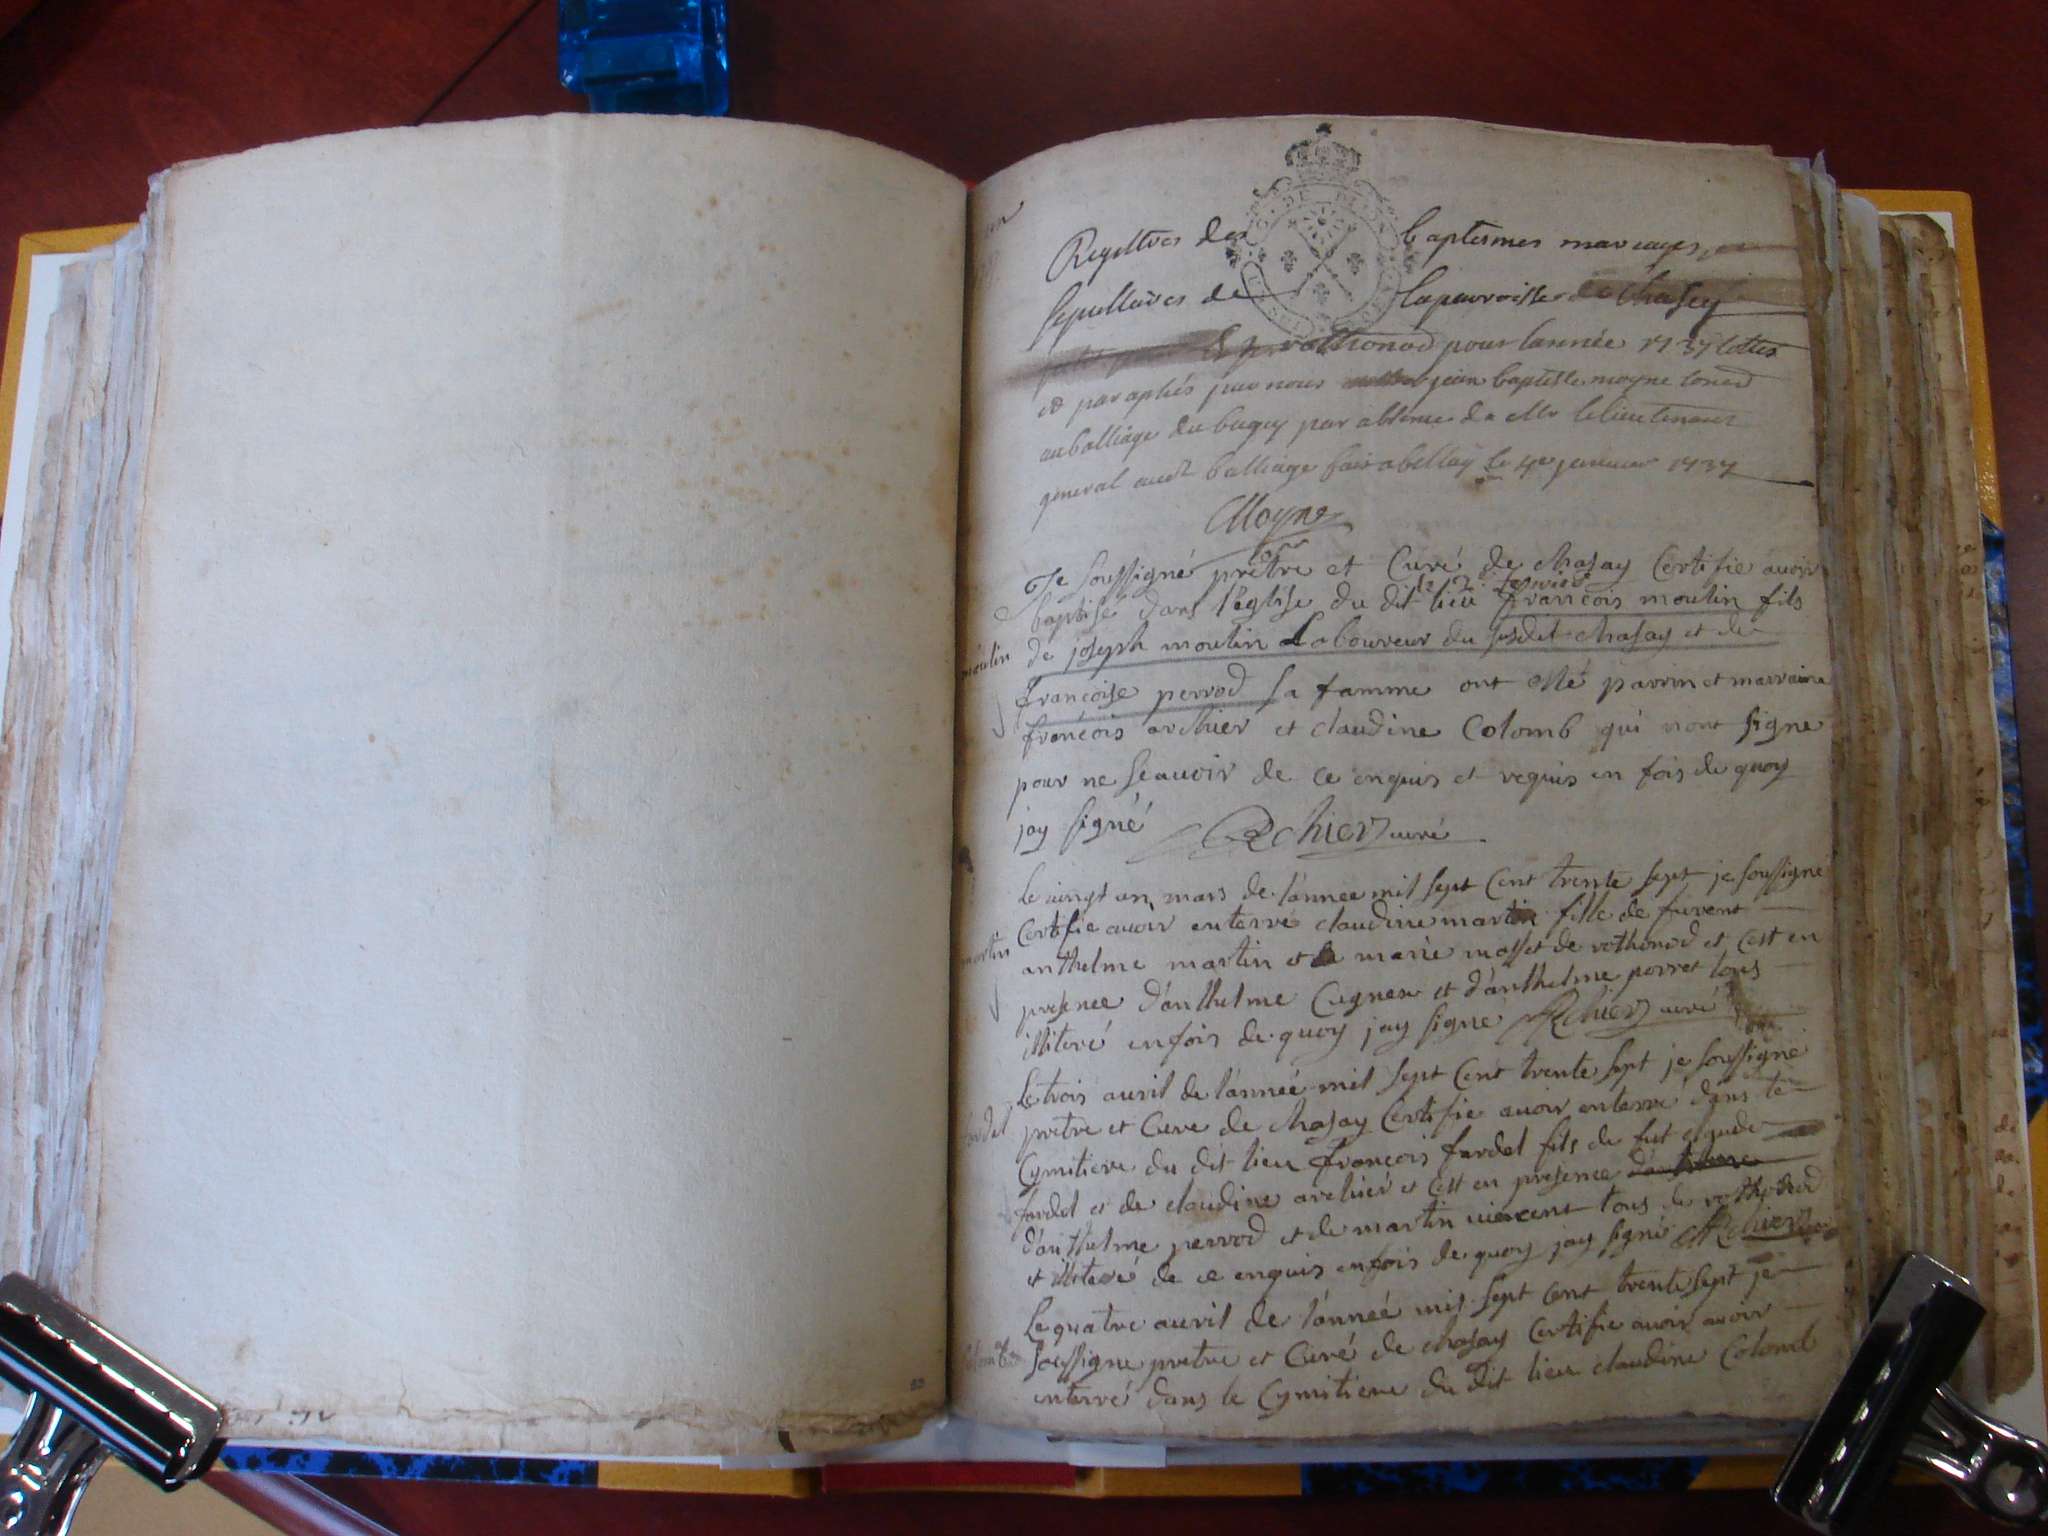 Registres des baptesmes mariages et
sepultures de la parroisse de Chasey
et rothonod pour lannée 1737 cottes
et paraphés par nous jean baptiste moyne conser
au balliage du bugey par absence de Mr le lieutenant
general audt balliage fait a bellay le 4e janvier 1737
Moyne
Je soussigné prêtre et Curé de Chasay Certifie avoir
le 2 fevrier
baptisé dans l'église du dit lieu françois moulin fils
moulin
de joseph moulin Laboureur du susdit Chasay et de
françoise perrod sa famme ont esté parrin et marraine
françois archier et claudine Colomb qui nont signe
pour ne scauoir de ce enquis et requis en fois de quoy
jay signé Archier curé
Le vingt un mars de lánnee mil sept Cent trente sept je soussigné
Certifie auoir enterré claudine martin fille de furent
martin
anthelme martin et marie masset de rothonod et C'est en
presence d'anthelme Cugnex et d'anthelme porret tous
illiteré en fois de quoy jay signé Archier curé
Le trois auril de lánneé mil sept Cent trente sept je soussigné
prêtre et Curé de Chasay Certifie auoir enterré dans le
fardel
Cymitiere du dit lieu françois fardel fils de fut claude
fardel et de claudine archier et C'est en presence
d'anthelme perrod et de martin vincent tous de rothonod
et illiteré de ce enquis en fois de quoy jay signé Archier curé
Le quatre auril de lánneé mil sept Cent trente sept je
soussigne prêtre et Curé de Chasay Certifie auoir auoir
Colomb
enterré dans le Cymitiere du dit lieu claudine Colomb